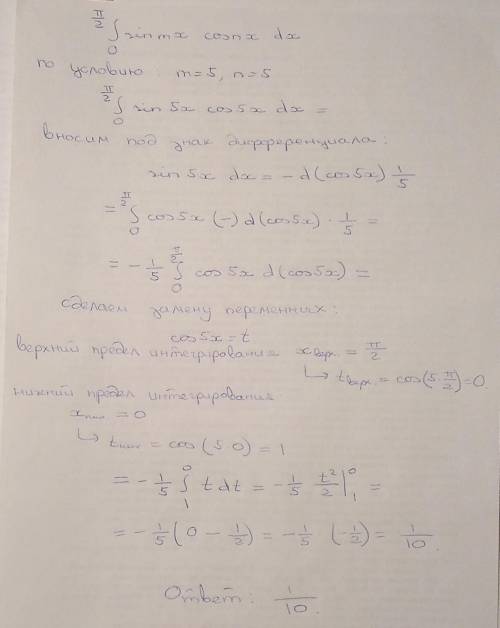 ∫₀^{π/2} sin mx cos nx dx
по условию: m=5, n=5
∫₀^{π/2} sin 5x cos 5x dx =
вносим под знак дифференциала:
sin 5x dx = -d(cos 5x) 1/5
= ∫₀^{π/2} cos 5x (-) d(cos 5x) · 1/5 =
= -1/5 ∫₀^{π/2} cos 5x d(cos 5x) =
сделаем замену переменных:
cos 5x = t
верхний предел интегрирования x верх. = π/2
↳ t верх. = cos(5·π/2) = 0.
нижний предел интегрирования
x ниж = 0
↳ t ниж = cos (5·0) = 1
= -1/5 ∫₁⁰ t dt = -1/5 t²/2 |₁⁰ =
= -1/5 (0 - 1/2) = -1/5 (-1/2) = 1/10.
Ответ: 1/10.